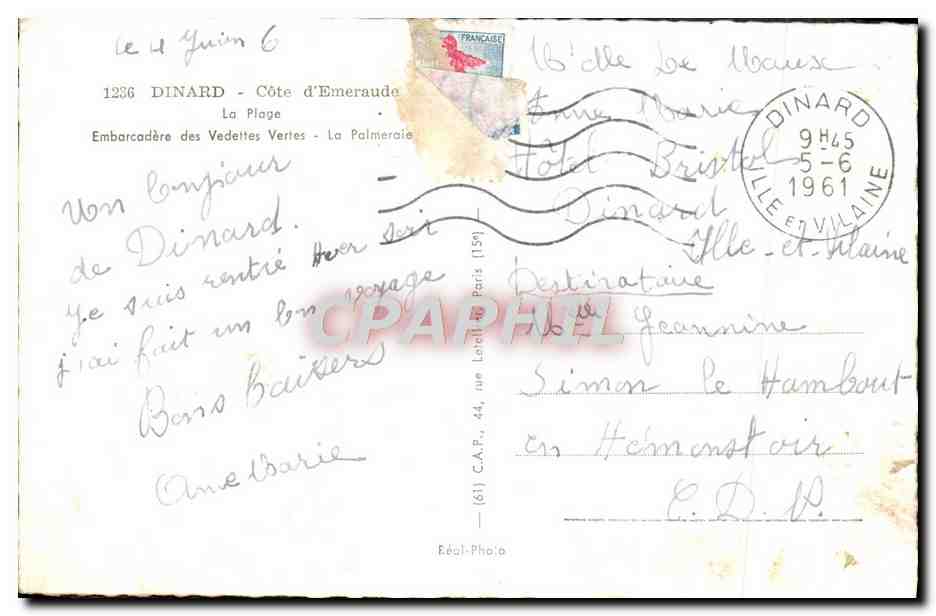 le 4 Juien 6
1236 DINARD - Côte d'Emeraude
La Plage
Embarcadère des Vedettes Vertes - La Palmeraie
Un bonjour
de Dinard.
Je suis rentré hier soir
j'ai fait un bon voyage
Bons baisers
Anne Marie
FRANÇAISE
(61) C.A.P., 44, rue Letellier, Paris (15e)
Réal-Photo
DINARD
9H45
5-6
1961
ILLE ET VILAINE
Mdlle Le
Anne Marie
Hôtel Bristol
Dinard
Ille-et-Vilaine
Destinataire
Mlle Jeannine
Simon le Hambout
en Hémonstoir
C. D. N.
CPAPHIL